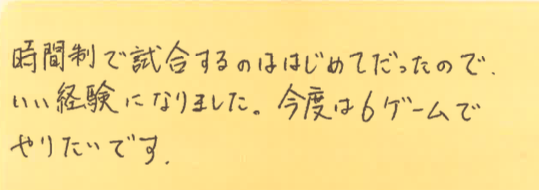 時間制で試合するのははじめてだったので、
いい経験になりました。今度は6ゲームで
やりたいです。